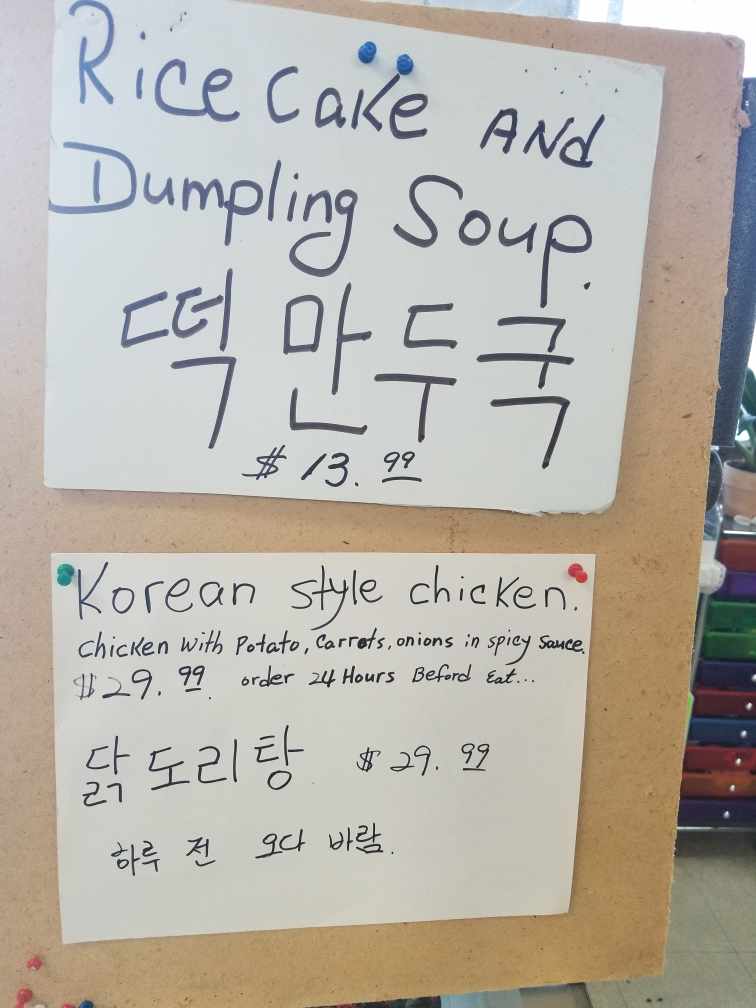 Rice Cake AND
Dumpling Soup.
떡 만두국
$ 13.99
Korean style chicken.
chicken with Potato, Carrots, onions in spicy Sauce.
$29.99. order 24 Hours Beford Eat...
닭도리탕 $29.99
하루 전 오다 바람.